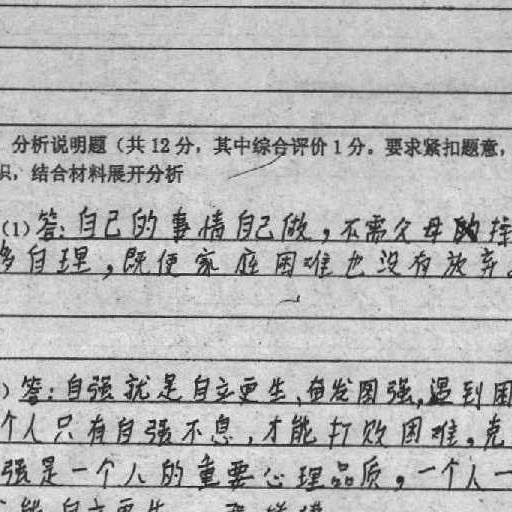 分析说明题（共12分，其中综合评价1分。要求紧扣题意，
识，结合材料展开分析
(1)答:自己的事情自己做，不需父母的
自理，既使家庭困难也没有放弃。
）答:自强就是自立更生、奋发图强,遇到困
个人只有自强不息,才能打败困难。克
强是一个人的重要心理品质。一个人一
能自立更生